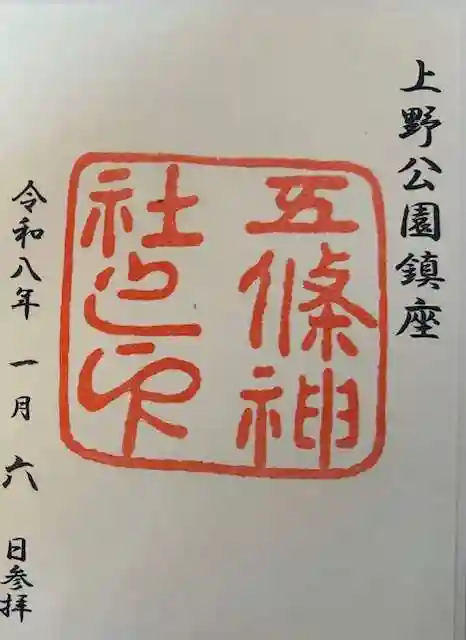 上野公園鎮座
五條神
社之印
令和八年 一月 六 日参拝